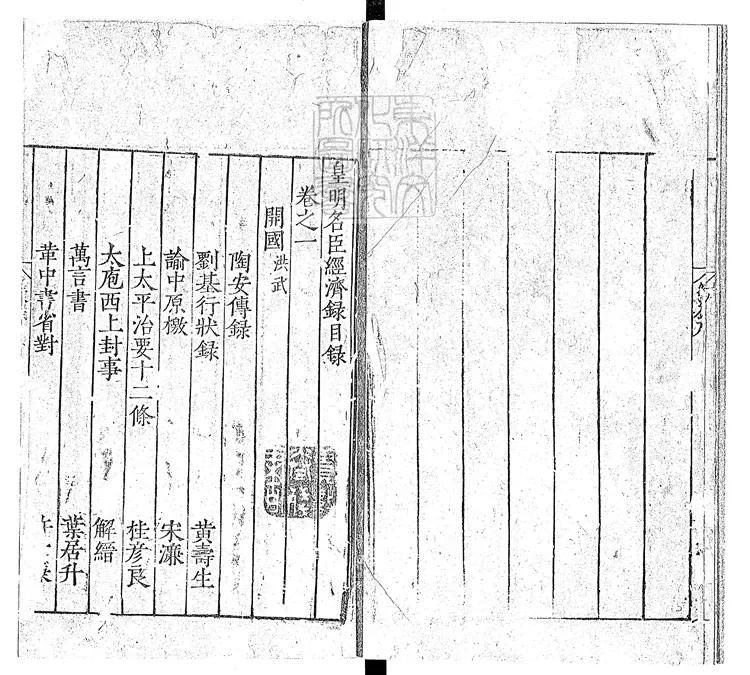 皇明名臣經濟録目録
卷之一
開國 洪武
陶安傳録
劉基行狀録 黃壽生
諭中原檄 宋濂
上太平治要十二條 桂彥良
大庖西上封事 解縉
萬言書 葉居升
革中書省對